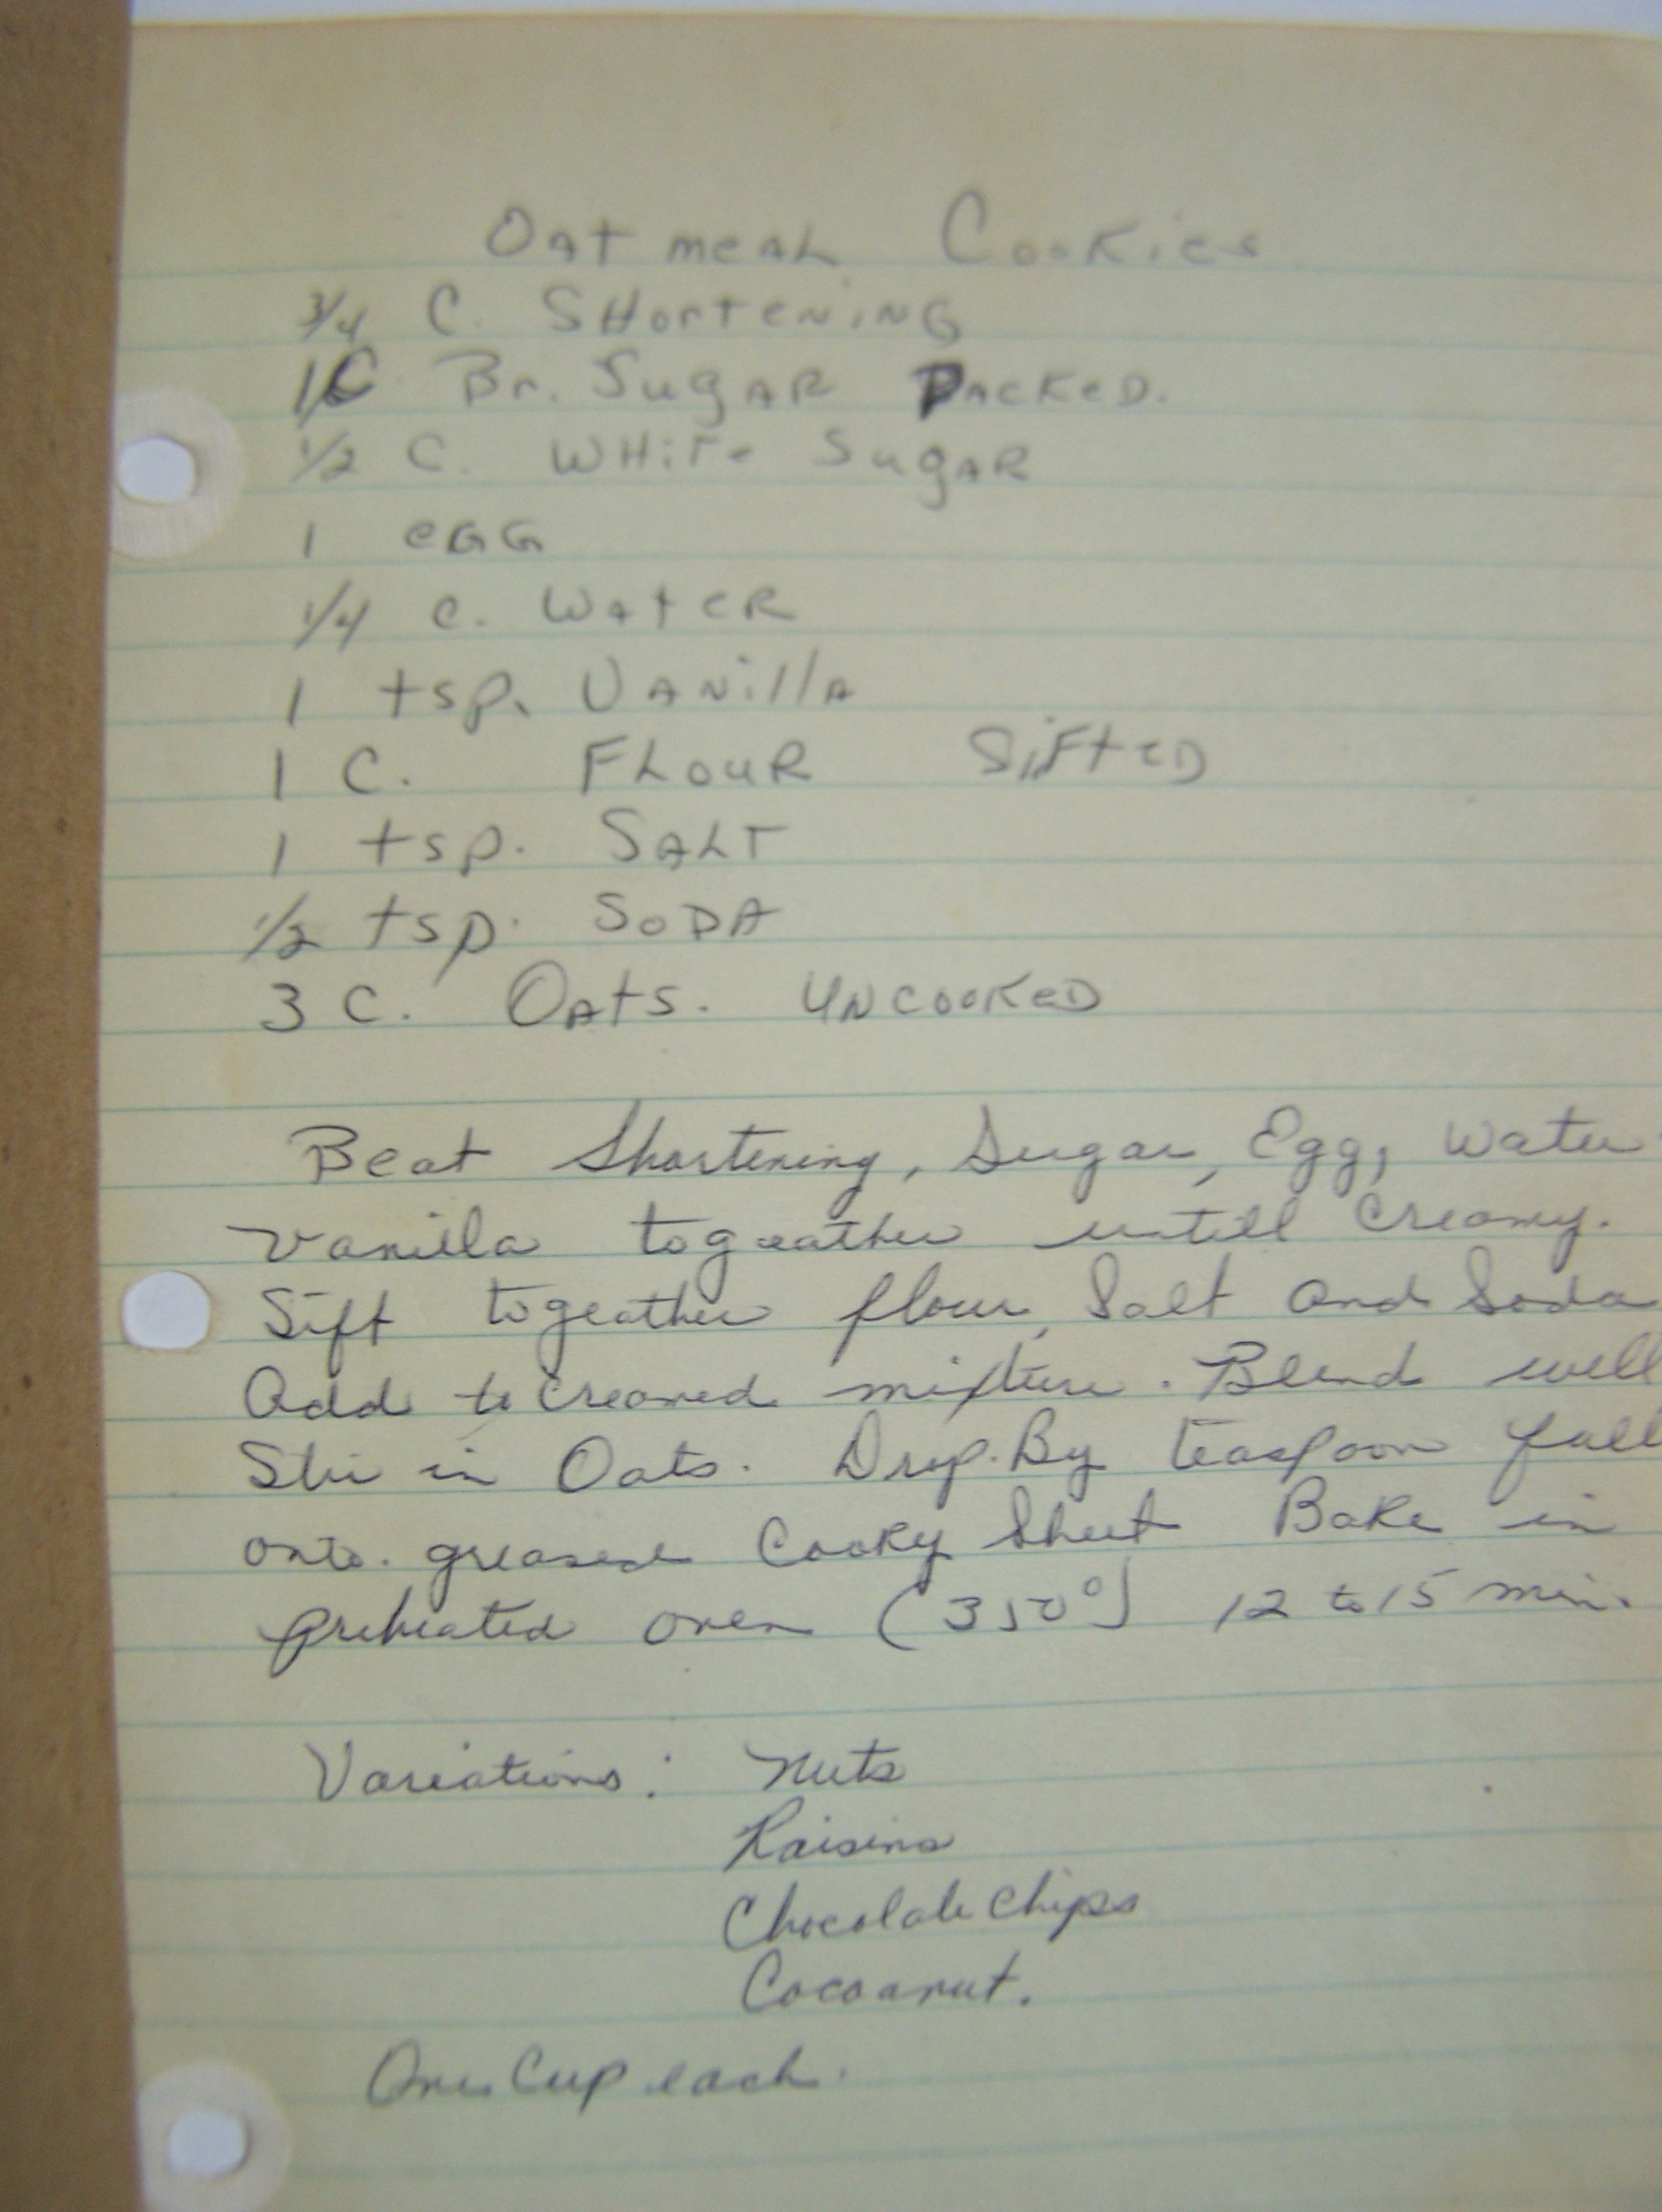 Oatmeal Cookies
3/4 C. Shortening
1 C Br. Sugar Packed.
1/2 C. White Sugar
1 egg
1/4 c. Water
1 tsp. Vanilla
1 C. Flour Sifted
1 tsp. Salt
1/2 tsp. Soda
3 C. Oats. Uncooked
Beat Shortening, Sugar, Egg, Water
Vanilla togeather untill Creamy.
Sift togeather flour, Salt and Soda
Add to Creamed mixture. Blend well
Stir in Oats. Drop. By teaspoon full
onto. greased Cooky Sheet Bake in
preheated oven (350°) 12 to 15 min.
Variations: Nuts
Raisins
Chocolate Chips
Cocoanut.
One Cup each.